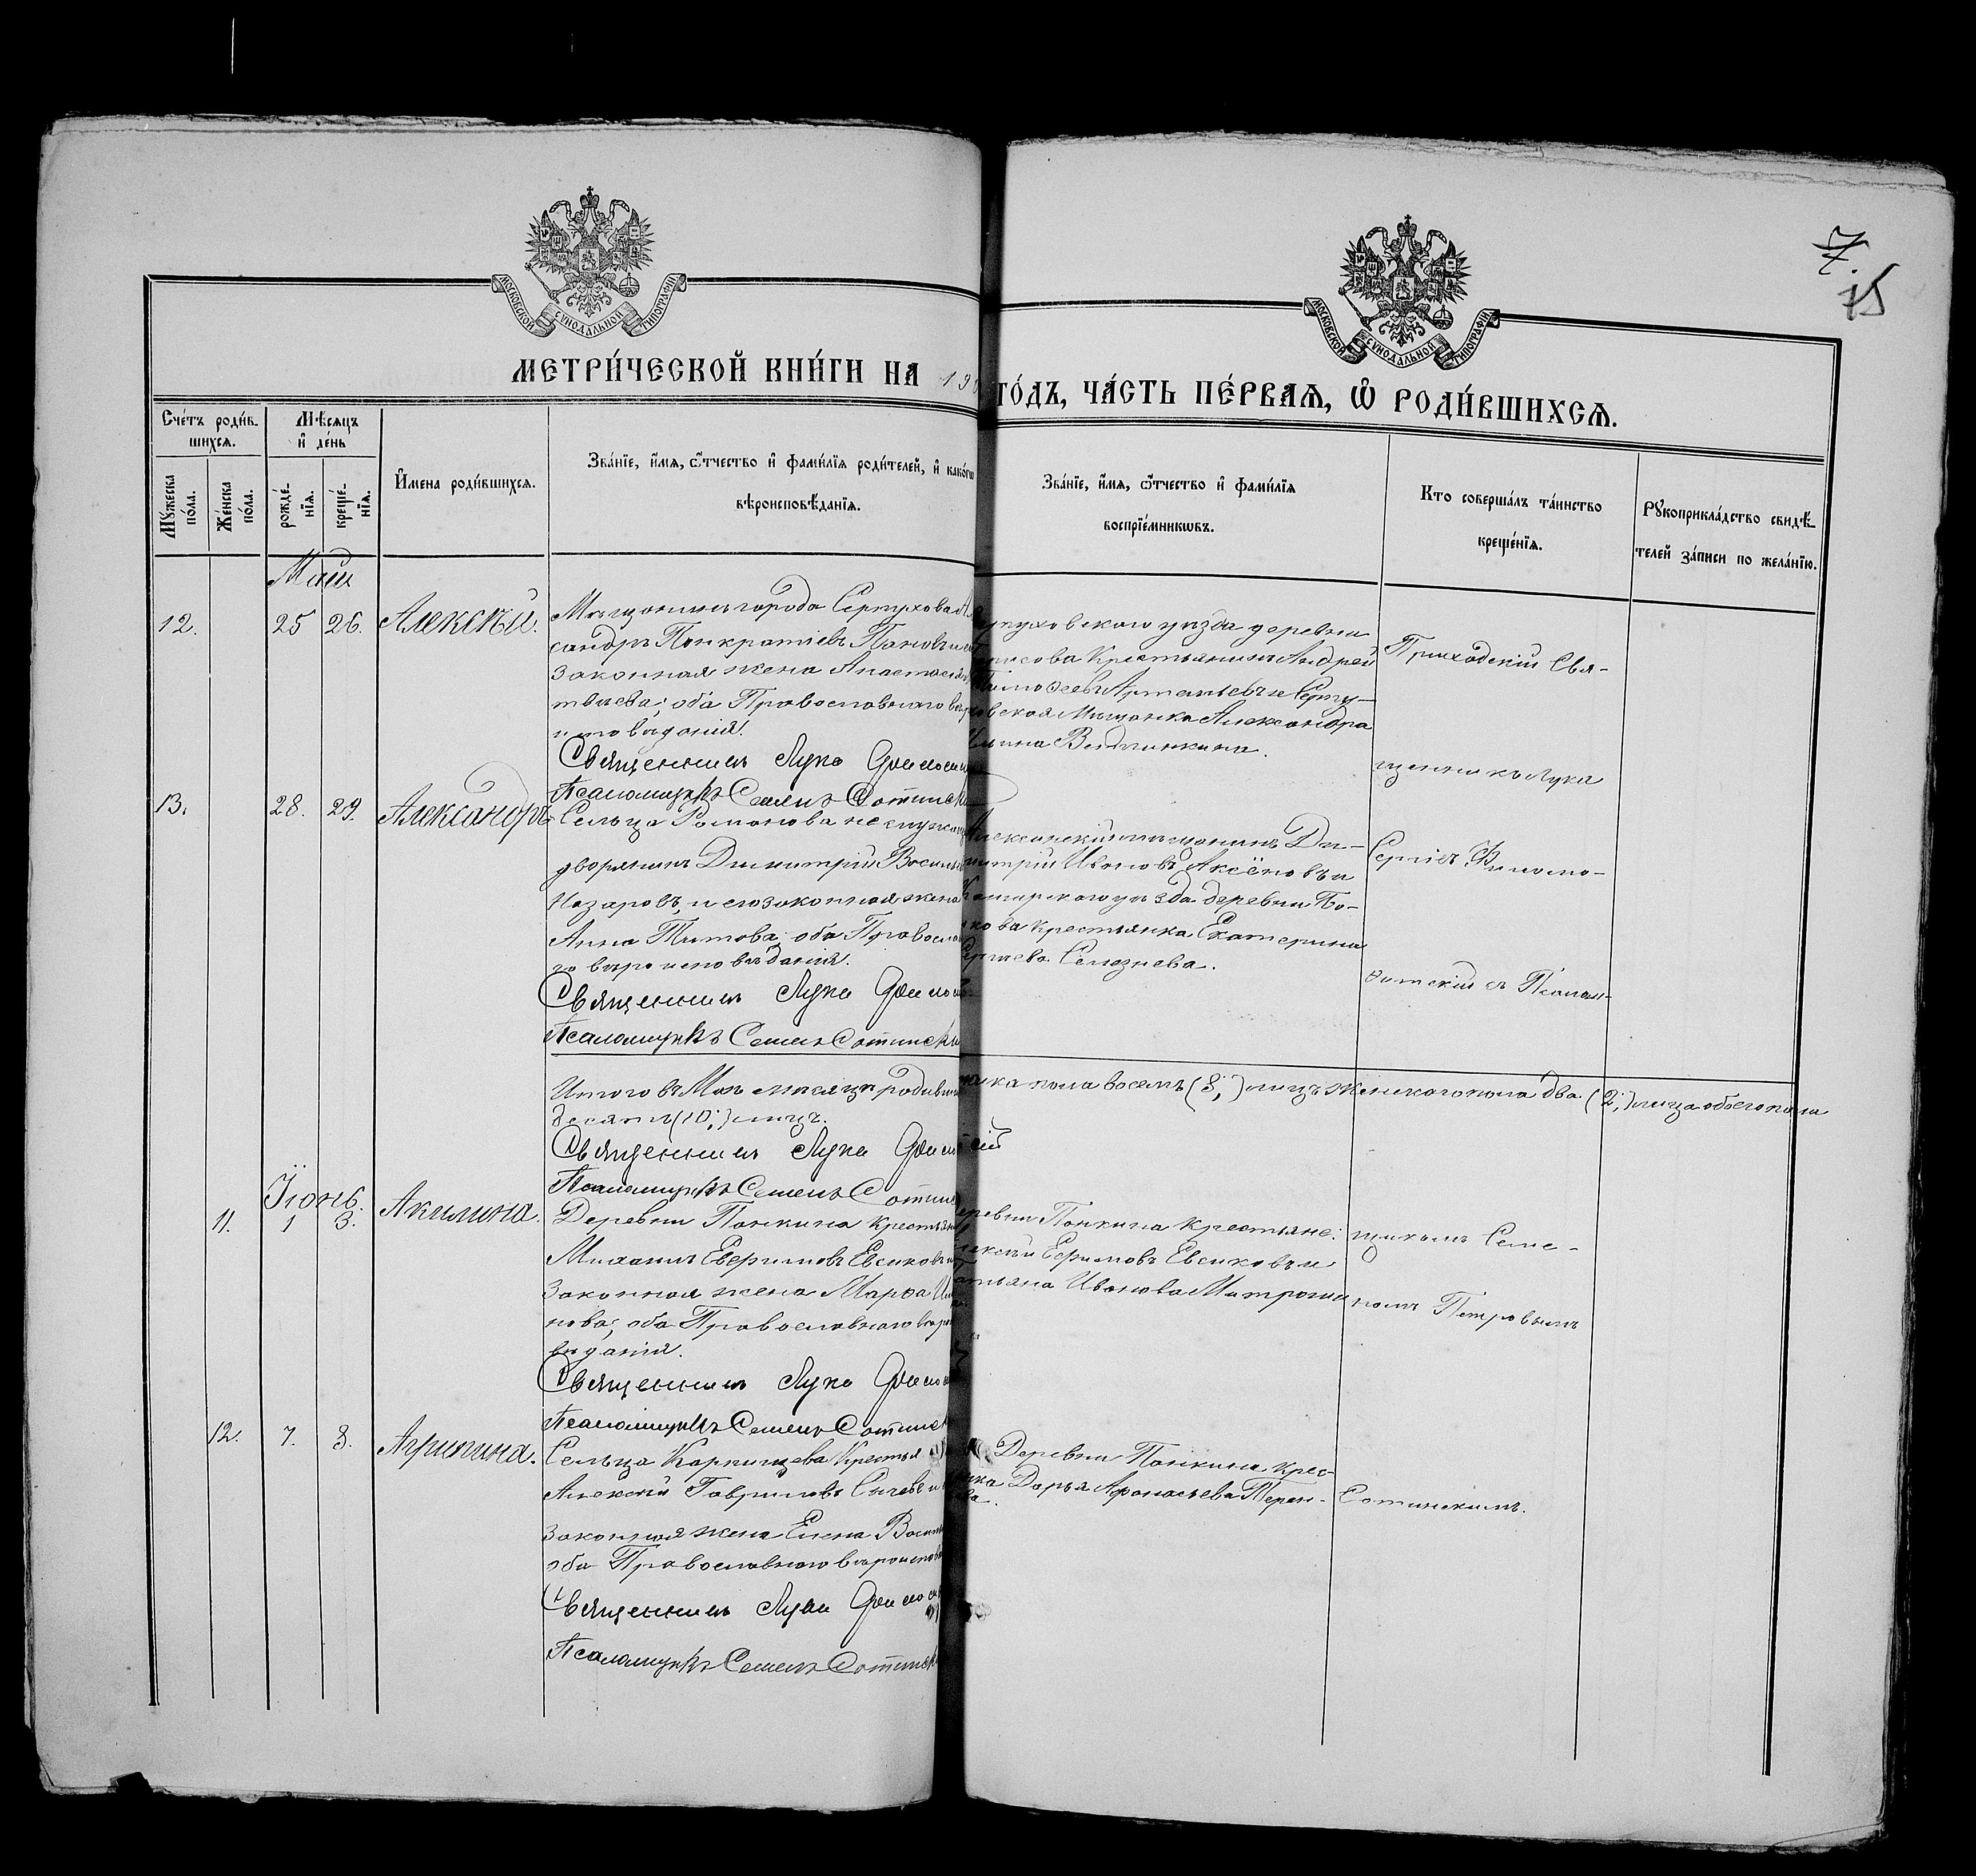 7.
15
МОСКОВСКОЙ СУНОДАЛЬНОЙ ТИПОГРАФІИ
МОСКОВСКОЙ СУНОДАЛЬНОЙ ТИПОГРАФІИ
МЕТРИ́ЧЕСКОЙ КНИ́ГИ НА 190
ГО́ДЪ, ЧА́СТЬ ПЕ́РВАѦ, Ѽ РОДИ́ВШИХСѦ.
Сче́тъ роди́в-
шихсѧ.
Мꙋ́жеска по́ла.
Же́нска по́ла.
Мѣ́сѧцъ и҆ де́нь
рожде́-нїѧ.
креще́-нїѧ.
И҆мена роди́вшихсѧ.
Зва́нїе, и҆́мѧ, ѻ҆́тчество и҆ фами́лїѧ роди́телей, и҆ како́гѡ
вѣроисповѣ́данїѧ.
Зва́нїе, и҆́мѧ, ѻ҆́тчество и҆ фами́лїѧ
воспрїе́мникѡвъ.
Кто соверша́лъ та́инство
креще́нїѧ.
Рꙋкоприкла́дство свидѣ́-
телей за́писи по жела́нїю.
Май
12. 25 26. Алексѣй.
Мѣщанинъ города Серпухова А
сандръ Панкратіевъ Пановъ и е
законная жена Анастасія
твѣева; оба Православнаго вѣр
исповѣданія.
Священникъ Лука
Псаломщикъ Семенъ Сотинск
рпуховскаго уѣзда деревни
рисова Крестьянинъ Андрей
Тимоѳеевъ Артемьевъ и Серпу-
ховская Мѣщанка Александра
Ильина
Приходскій Свя-
щенникъ Лука
13. 28. 29. Александръ
Сельца Романова не служащ
дворянинъ Димитрій Василь
Назаровъ, и его законная жена
Анна Титова, оба Правосла
го вѣроисповѣданія.
Священникъ Лука
Псаломщикъ Семенъ Сотинскі
Алексинскій мѣщанинъ Ди-
митрій Ивановъ Аксёновъ и
Каширскаго уѣзда деревни Бо-
кова крестьянка Екатерина
Сергѣева Селезнева.
Сергіев
скій съ Псалом-
Итого въ Маѣ мѣсяцѣ родивши
ска пола восемь (8;) лицъ женскаго пола два (2;) лица обоего пола
десять (10;) лицъ.
Священникъ Лука
скій
Псаломщикъ Семенъ Сотинс
Іюнь.
11. 1 3. Акилина.
Деревни Панкина крестьян
Михаилъ Ефримовъ Евсиковъ и
законная жена Марѳа
нова; оба Православнаго вѣро
вѣданія.
Священникъ Лука
Псаломщикъ Семенъ Сотинск
еревни Панкина крестьяне:
лексѣй Ефримовъ Евсиковъ и
атьяна Иванова Митрохи
щикомъ Семе-
номъ Петровымъ
12. 7. 8. Агрипина.
Сельца Карпищева Крестья
Алексѣй Гавриловъ Сычевъ и
законная жена Елена Васил
оба Православнаго вѣроисповѣ
Священникъ Лука
Псаломщикъ Семенъ Сотинскі
Деревни Панкина, крес-
нка Дарья Аѳанасьева Терен-
ва.
Сотинскимъ.